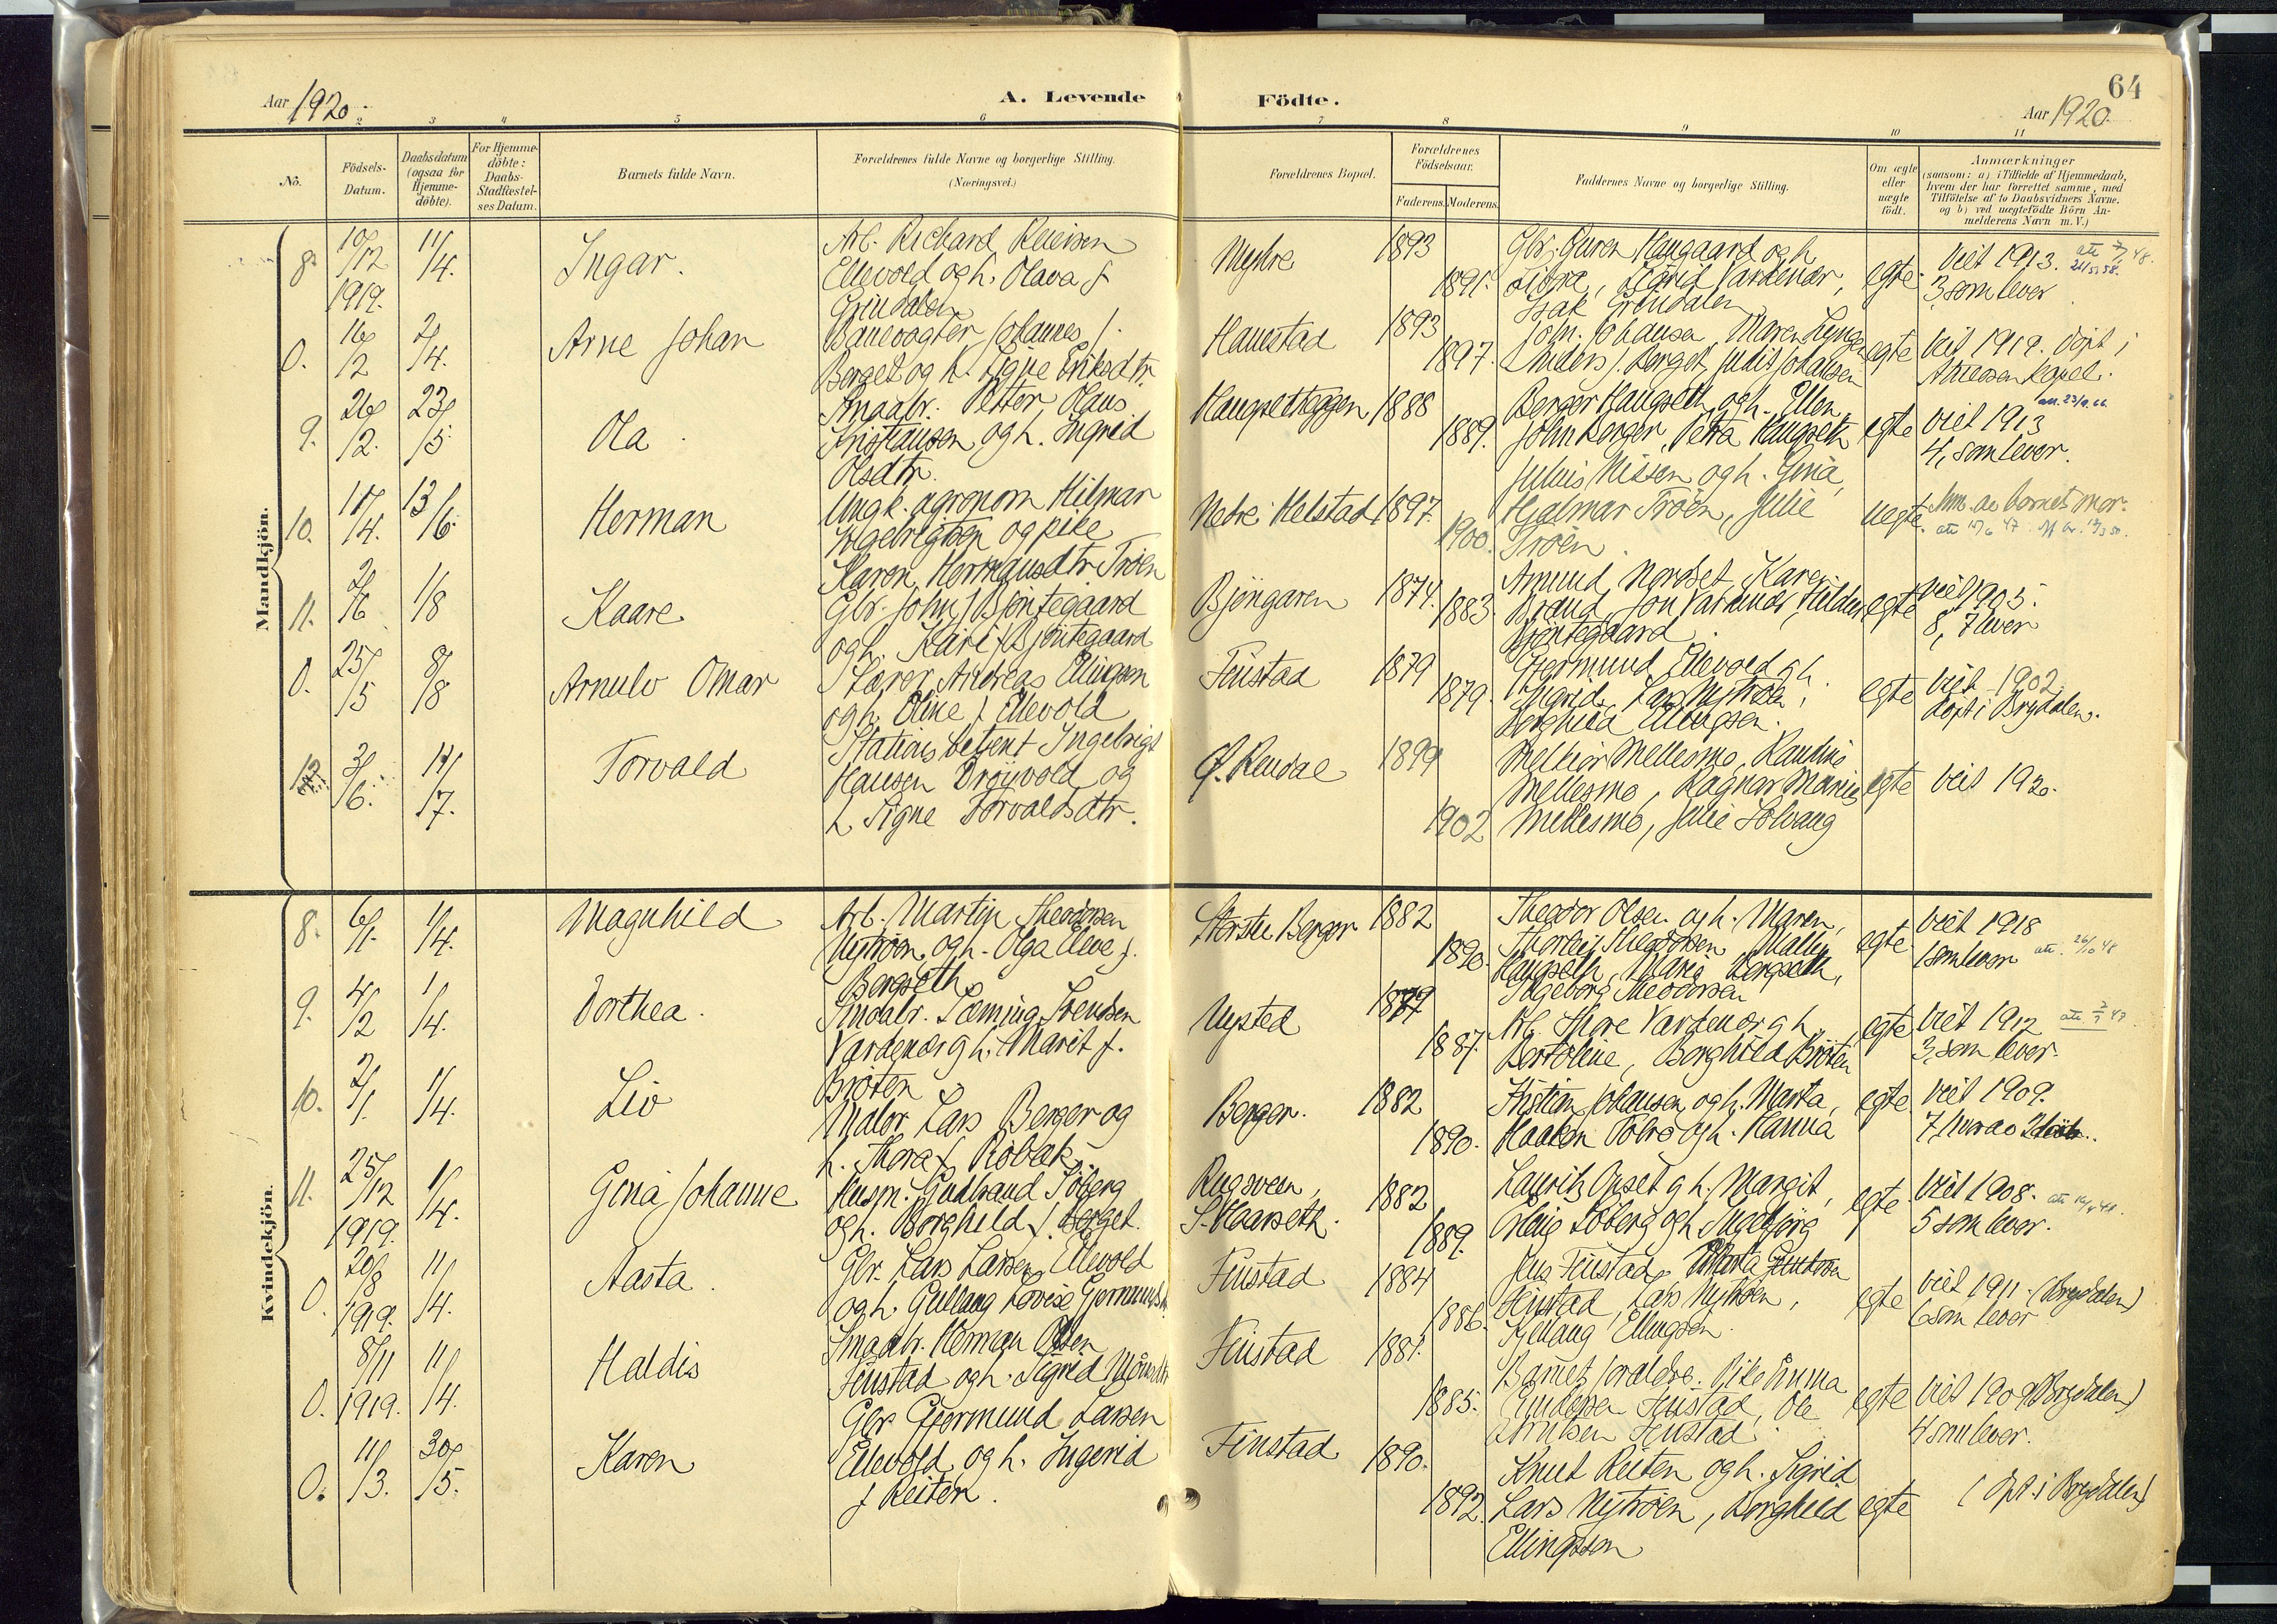 64
Aar 1920.
A. Levende
Födte.
Aar 1920.
2 3 4 5 6 7 8 9 10 11
No.
Födsels-
Datum.
Daabsdatum
(ogsaa for
Hjemme-
döbte).
For Hjemme-
döbte:
Daabs-
Stadfæstel-
ses Datum.
Barnets fulde Navn.
Forældrenes fulde Navne og borgerlige Stilling.
(Næringsvei.)
Forældrenes Bopæl.
Forældrenes
Födselsaar.
Faderens. Moderens.
Faddernes Navne og borgerlige Stilling.
Om ægte
eller
uægte
födt.
Anmærkninger
(saasom: a) i Tilfælde af Hjemmedaab,
hvem der har forrettet samme, med
Tilföielse af to Daabsvidners Navne.
og b) ved uægtefödte Börn An-
melderens Navn m. V.)
Mandkjön.
8. 10/12 1919. 11/4. Ingar.
Arb. Richard
Ellevold og h. Olava f
Grindalen
1893
1891.
Haugaard og h
Isak Grindalen
egte. Viet 1913.
3 som lever
0. 16/2 2/4. Arne Johan
Banevogter Johannes J.
Berget og h. Signe Eriksdtr.
Hanestad 1893
1897.
Joh. Johansen, Maren
Anders J. Berget, Judit Johansen
egte Viet 1919. døpt i
Atneosen kapel.
9. 26/2. 23/5 Ola
Smaabr. Petter Olaus
Kristiansen og h. Ingrid
Olsdtr.
Haugsetheggen 1888
1889.
Berger Haugseth og h. Ellen
John Berger, Petra Haugseth
egte viet 1913
4, som lever.
10. 17/4. 13/6. Herman
Ungk. agronom Hilmar
og pike
Karen Hermansdtr Trøen
Nedre Helstad 1897.
1900.
Julius Nissen og h. Gina,
Hjalmar Trøen, Julie
Trøen
uegte. Anm. av barnets mor.
11. 2/6 1/8 Kaare
Gbr. John J Bjøntegaard
og h. Kari f Bjøntegaard
Bjøngaren 1874.
1883.
Amund Nordset, Karen
Jon Vardenær, Hilda
Bjøntegaard
egte viet 1905.
8, 7 lever
0. 25/5 8/8 Arnulv Omar
Lærer Andreas Ellingsen
og h. Oline f Ellevold
Finstad 1879
1879.
Gjermund Ellevold og h.
Ingrid, Lars Nytrøen,
Borghild Ellingsen.
egte Viet 1902
døpt i Brydalen.
12. 3/6. 11/7. Torvald
Stations betjent Ingebrigt
Hansen Drøivold og
h. Signe Torvaldsdtr.
Ø. Rendal 1899
1902
Melkior Mellesmo, Randine
Mellesmo, Ragnar Marius
Mellesmo, Julie Solvang
egte Viet 1920.
Kvindekjön.
8. 6/1. 1/4. Magnhild
Arb. Martin Theodorsen
Nytrøen og h. Olga Elve f.
Bergseth
Berger 1882
1890.
Theodor Olsen og h. Maren,
Haugseth, Maria Bergseth,
Ingeborg Theodorsen
egte viet 1918
1 som lever
9. 4/2 1/4. Dorthea.
Smaabr. Svendsen
Vardenær og h. Marit f.
Brøten
Nysted 1879
1887.
Arb. Thore Vardenær og h
Bertoline, Borghild Brøten
egte viet 1912
3, som lever.
10. 2/1. 1/4. Liv
Maler Lars Berger og
h. Thora f Robæk
Berger. 1882
1890.
Kristian Johansen og h. Marta,
Haakon og h. Hanna
egte viet 1909.
7, hvorav 2
11. 25/12 1919. 1/4. Gina Johanne
Husm. Gudbrand Søberg
og h. Borghild f. Berget.
Rugsveen,
S. Haarseth. 1882
1889.
Laurits Opset og h. Margit,
Søberg og h. Magnhild
egte Viet 1908.
5 som lever.
0. 20/8 1919. 11/4. Aasta.
Gbr. Lars Larsen Ellevold
og h. Gullaug Lovise
Finstad 1884
1886.
Finstad, Lars Nytrøen,
Kjellaug Ellingsen
egte viet 1911. (Brydalen)
6 som lever
0. 8/11 1919. 11/4. Haldis
Smaabr. Herman Olsen
Finstad og h. Sigrid
Finstad 1881.
1885.
Barnets foreldre. Pike Emma
Finstad, Ole
Finstad.
egte Viet 1909 (Brydalen)
4 som lever.
0. 11/3. 30/5. Karen
Gbr Gjermund Larsen
Ellevold og h. Ingerid
f Reiten.
Finstad 1890.
1892.
Knut Reiten og h. Sigrid
Lars Nytrøen, Borghild
Ellingsen
egte (Dpt. i Brydalen)